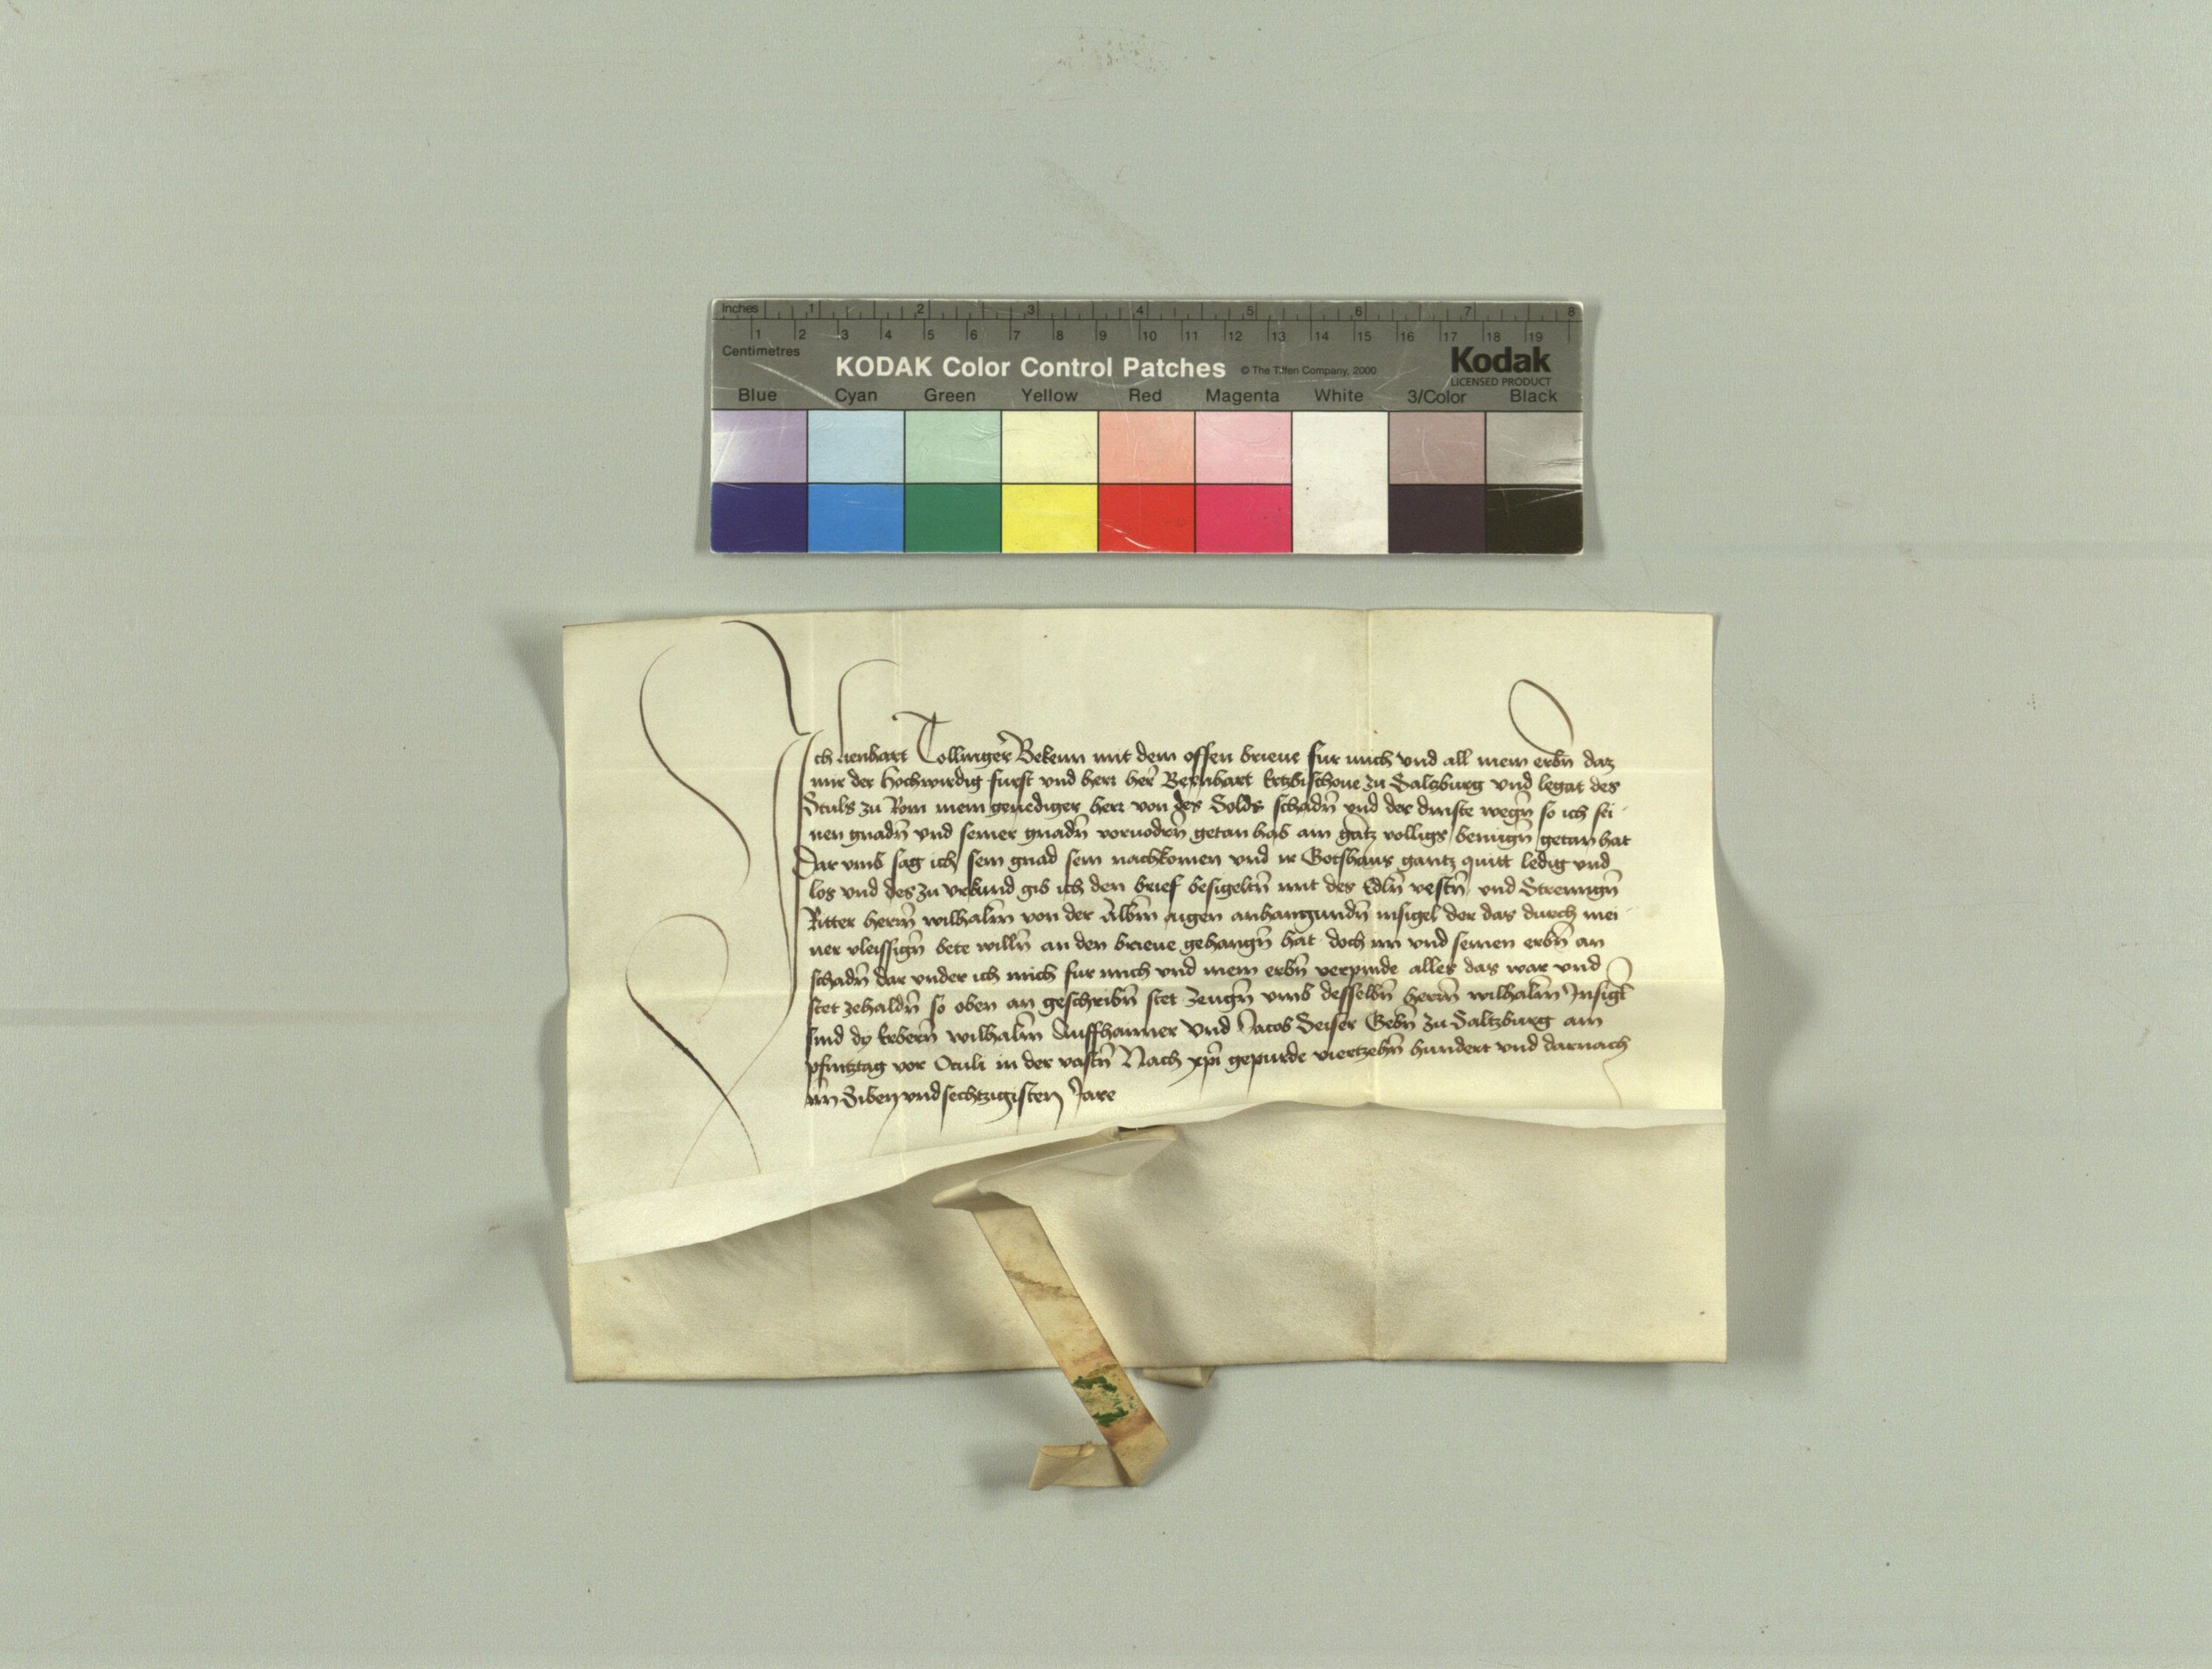 Inches 1 2 3 4 5 6 7 8
1 2 3 4 5 6 7 8 9 10 11 12 13 14 15 16 17 18 19
Centimetres
KODAK Color Control Patches © The Tiffen Company, 2000 Kodak
LICENSED PRODUCT
Blue Cyan Green Yellow Red Magenta White 3/Color Black
Ich lienhart Tollinger Bekenn mit dem offen brieue fur mich vnd all mein erbn̄ daz
mir der hochwirdig furst vnd herr her Bernhart Ertzbischoue zu Saltzburg vnd legat des
Stuls zu Rom mein genediger herr von des Solds schadn̄ vnd der dinste wegn̄ so ich sei
nen gnadn̄ vnd seiner gnadn̄ voruodrn̄ getan hab ain gātz volligs benugn̄ getan hat
Dar vmb sag ich sein gnad sein nachkomen vnd ir Gotshaus gantz quitt ledig vnd
los vnd des zu vrkund gib ich den brief besigeltn̄ mit des Edln̄ vestn̄ vnd Strenngn̄
Ritter herrn̄ wilhalm̄ von der Albm̄ aigen anhangundn̄ insigel der das durch mei
ner vleissign̄ bete willn̄ an den brieue gehangn̄ hat doch im vnd seinen erbn̄ an
schadn̄ dar vnder ich mich fur mich vnd mein erbn̄ verpinde alles das war vnd
stet zehaldn̄ so oben an geschribn̄ stet zeugn̄ vmb desselbn̄ herrn̄ wilhalm̄ Insigl
sind dy Erbern̄ wilhalm̄ Auffhaimer vnd Jacob Geben zu Saltzburg am
pfintztag vor Oculi in der vastn̄ Nach xpī gepurde viertzehn̄ hundert vnd darnach
im Siben vnd sechtzigisten Jare